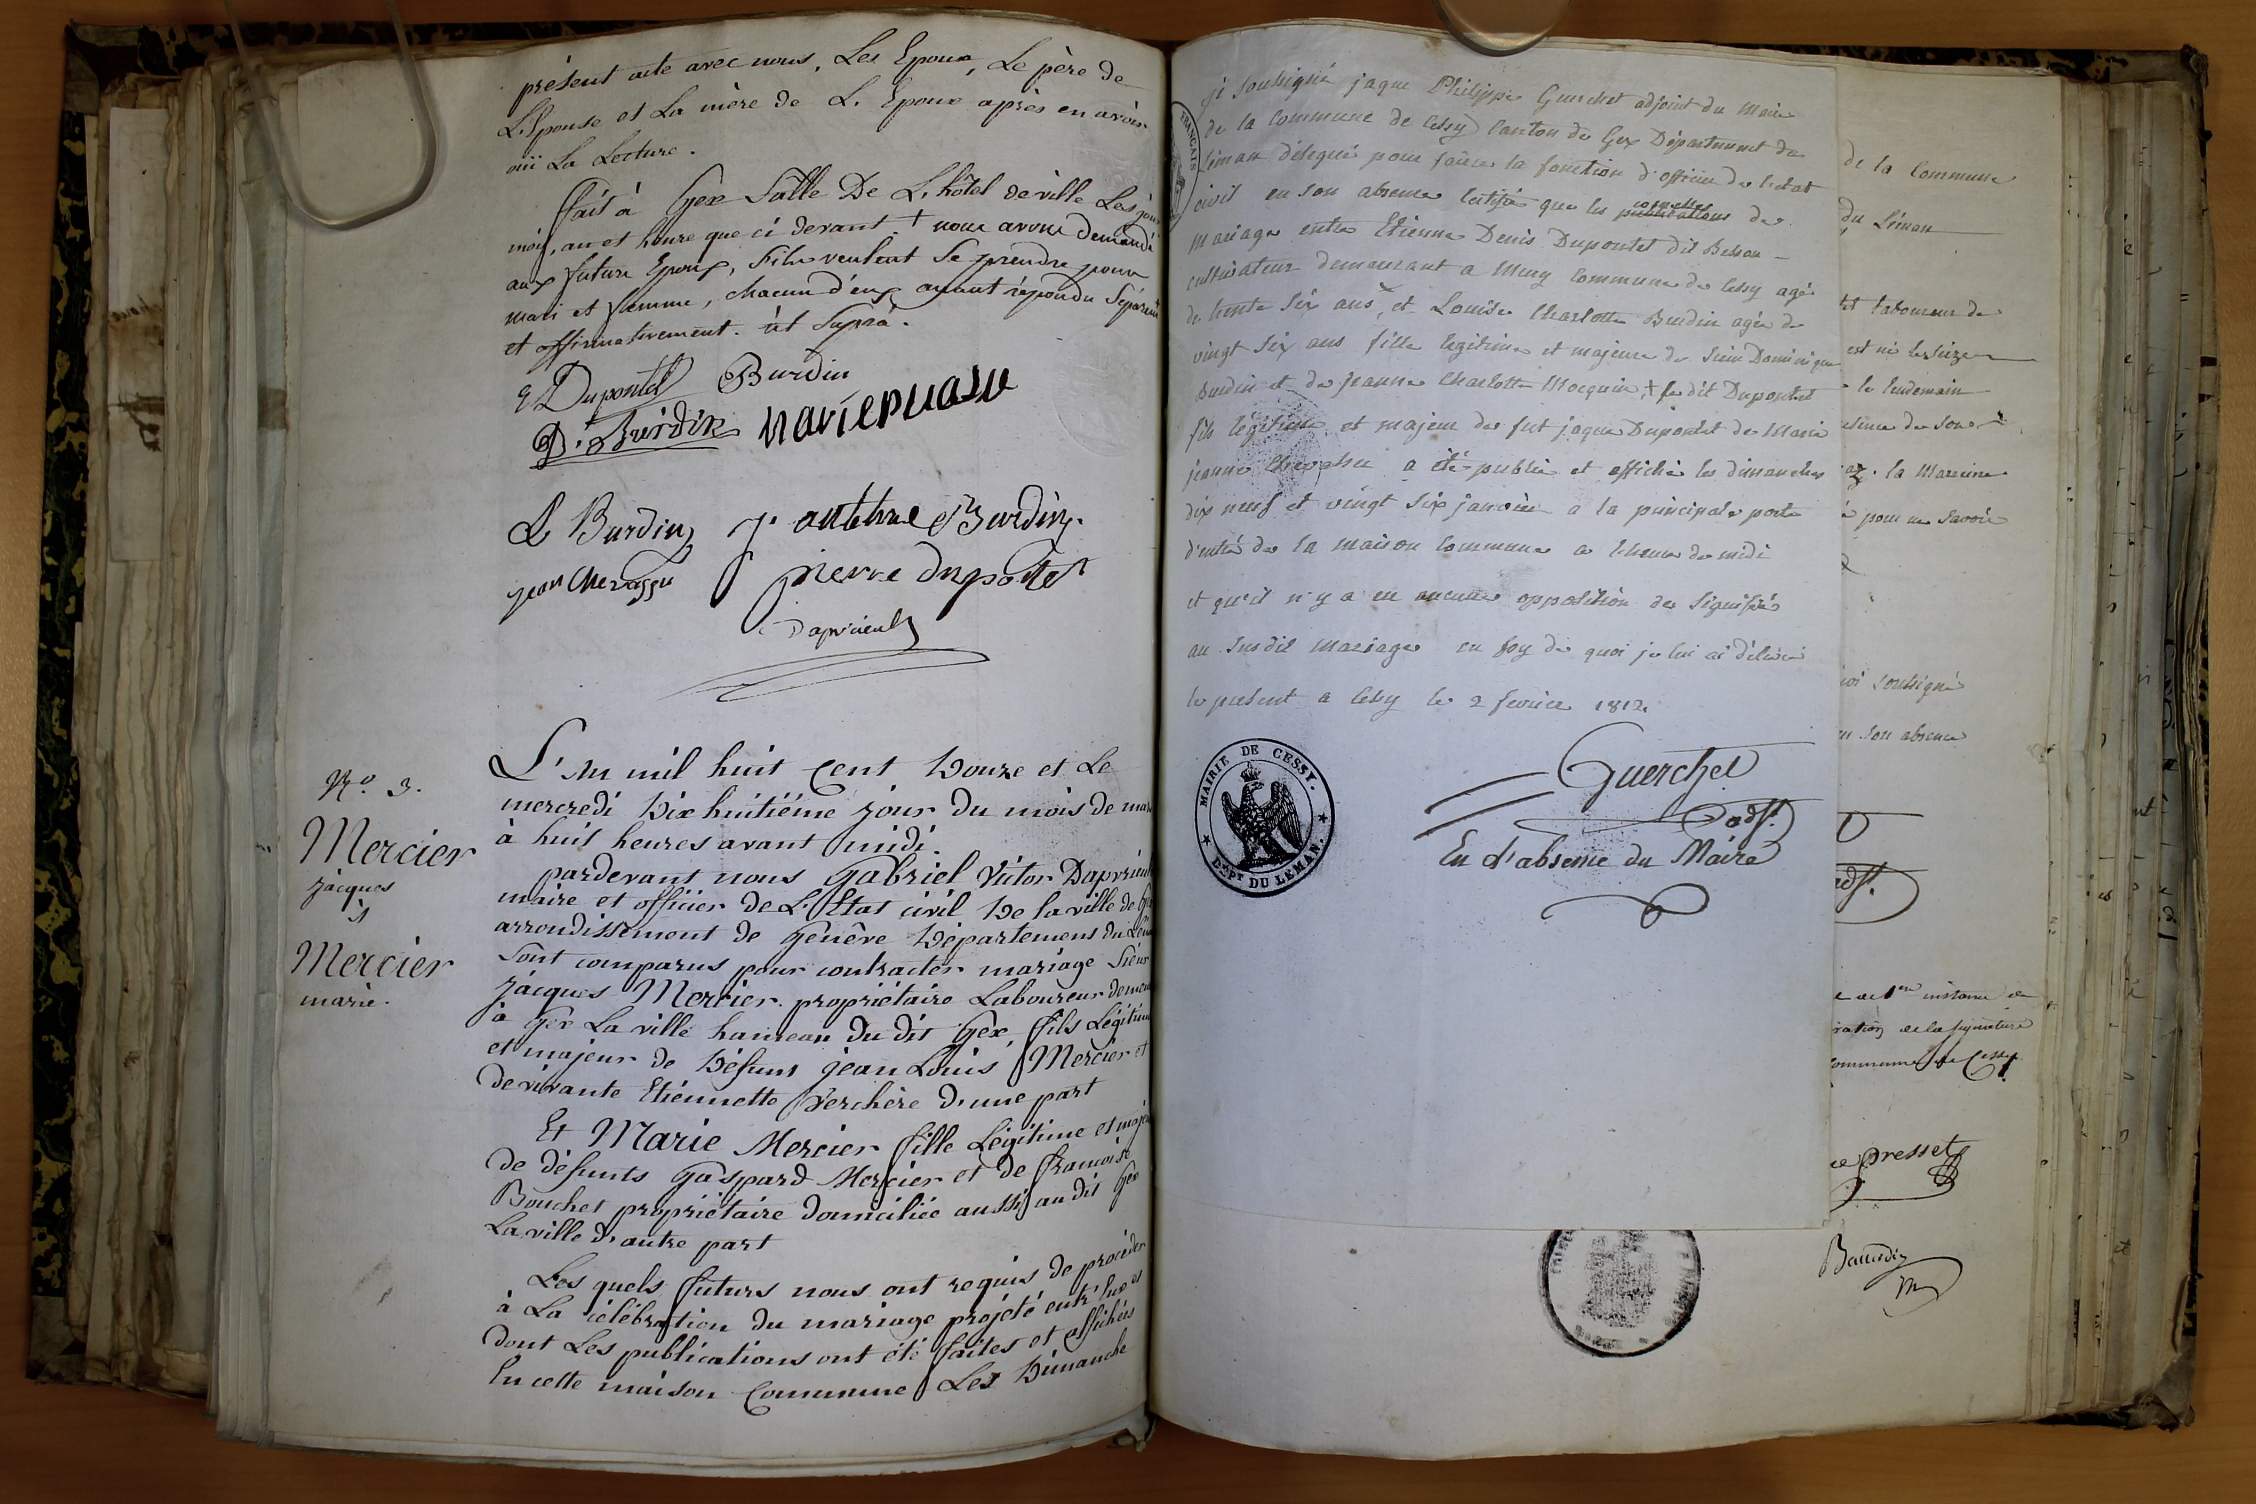 présent acte avec nous, Les Epoux, Le père de
L'Epouse et La mère de L. Epoux après en avoir
oüi La Lecture.
ffait à Gex Salle De L. hôtel de ville Les jour
mois, an et heure que ci devant. + nous avons demandé
aux futurs Epoux, S'ils veulent Se prendre pour
mari et femme, chacun d'eux ayant répondu Séparém
et affirmativement. ut Suprà.
E Dupontet Burdin
D. Burdin
L Burdin J. anthelme Burdin
jean Chevassu pierre Dupontet
Dapvrieul
N.o 3.
Mercier
jacques
à
Mercier
marie.
L'An mil huit Cent Douze et Le
mercredi Dix huitième jour du mois de mars
à huit heures avant midi.
pardevant nous Gabriel Victor Dapvrieul
maire et officier de L. Etat civil De la ville de Gex
arrondissement de Genève Département du Lém
Sont comparus pour contracter mariage Sieur
Jacques Mercier propriétaire Laboureur demeu
à Gex La ville hameau du dit Gex, ffils Légitime
et majeur de Défunt jean Louis Mercier et
de vivante Etiennette Verchère d'une part
Et Marie Mercier ffille Légitime et maje
de défunts Gaspard Mercier et de françoise
Bouchet propriétaire domiciliée aussi au dit Gex
La ville d'autre part
Les quels ffuturs nous ont requis de procéder
à La célébration du mariage projeté entr'Eux et
dont Les publications ont été ffaites et affichées
En cette maison Commune Les Dimanche
FRANÇAIS
je soussigné jaque Philippe Guerchet adjoint du Maire
de la Commune de Cessy Canton de Gex Département du
Léman délégué pour faire la fonction d'officier de l'etat
civil en son absence Certifie que les promesses de
Mariage entre Etienne Denis Dupontet dit Besson
cultivateur demeurant a Mury Commune de Cessy agé
de trente Six ans, et Louise Charlotte Burdin agée de
vingt Six ans fille legitime et majeure de Sieur Dominique
Burdin et de jeanne Charlotte Mocquin, + le dit Dupontet
fils légitime et majeur de fut jaque Dupontet de Marie
jeanne Chevassu a été publié et affiché les dimanches
dix neuf et vingt Six janvier a la principale porte
d'entré de la maison Commune a l'heure de midi
et qu'il n'y a eu aucune opposition de Signifiés
au Susdit Mariage en foy de quoi je lui ai délivré
le present a Cessy le 2 fevrier 1812.
Guerchet
adjt.
En l'absence du Maire
MAIRIE DE CESSY.
Dépt DU LEMAN.
de la Commune
du Léman
laboureur de
est né le seize
le lendemain
la Marraine
pour ne Savoir
soussigné
en son absence
adjt.
de 1ere instance
de la signature
Commune de Cessy
Presset